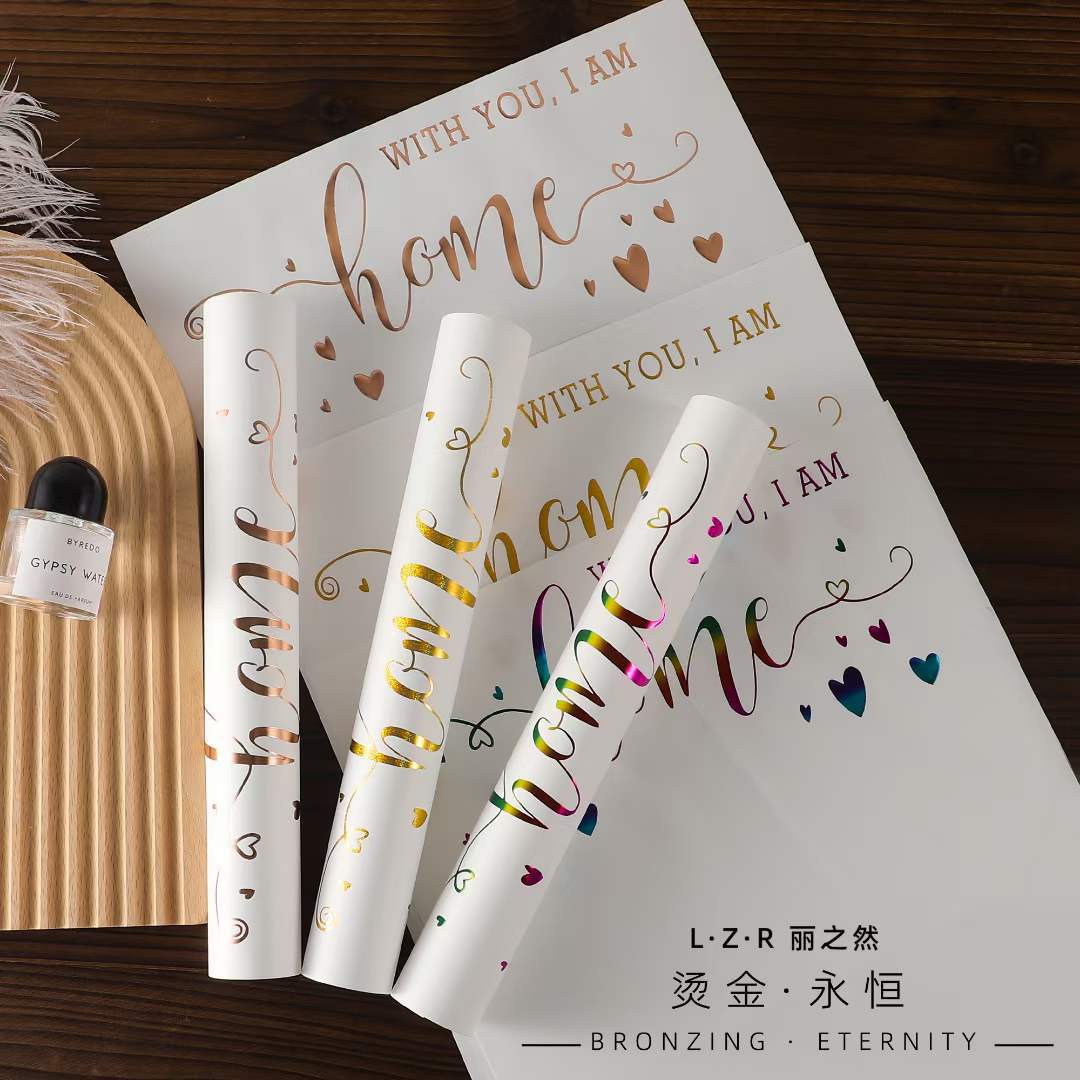 WITH YOU, I AM
home
WITH YOU, I AM
hom
OU, I AM
me
home
home
home
BYREDO
GYPSY WATE
EAU DE PARFUM
L·Z·R 丽之然
烫金·永恒
BRONZING · ETERNITY